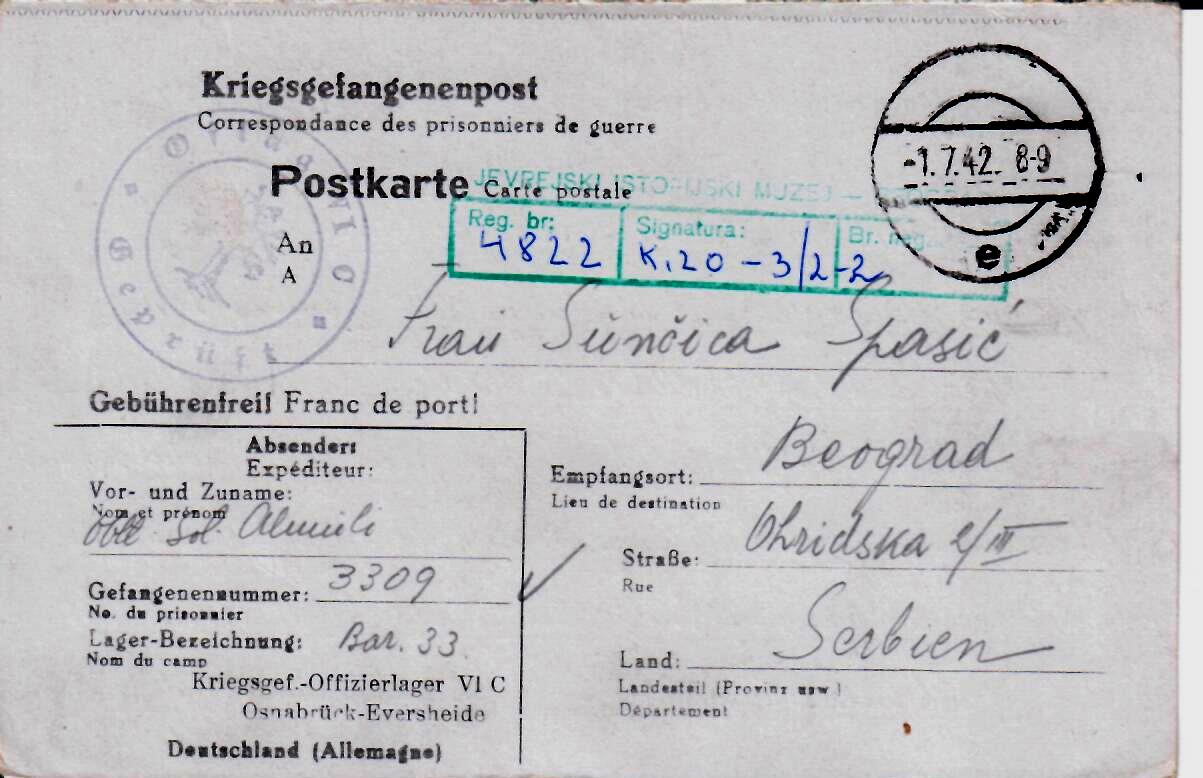 Kriegsgefangenenpost
Correspondance des prisonniers de guerre
Postkarte Carte postale
-1.7.42. 8-9
e
Oflag VI C
Geprüft
JEVREJSKI ISTORIJSKI MUZEJ —
Reg. br:
4822
Signatura:
K.20-3/2-2
Br. neg.
An
A
Frau Sunčica Spasić
Gebührenfrei! Franc de port!
Absender:
Expéditeur:
Vor- und Zuname:
Nom et prénom
Sol. Almuli
Gefangenennummer: 3309
No. du prisonnier
Lager-Bezeichnung: Bar. 33.
Nom du camp
Kriegsgef.-Offizierlager VI C
Osnabrück-Eversheide
Deutschland (Allemagne)
Empfangsort: Beograd
Lieu de destination
Straße: Ohridska
Rue
Land: Serbien
Landesteil (Provinz usw.)
Département